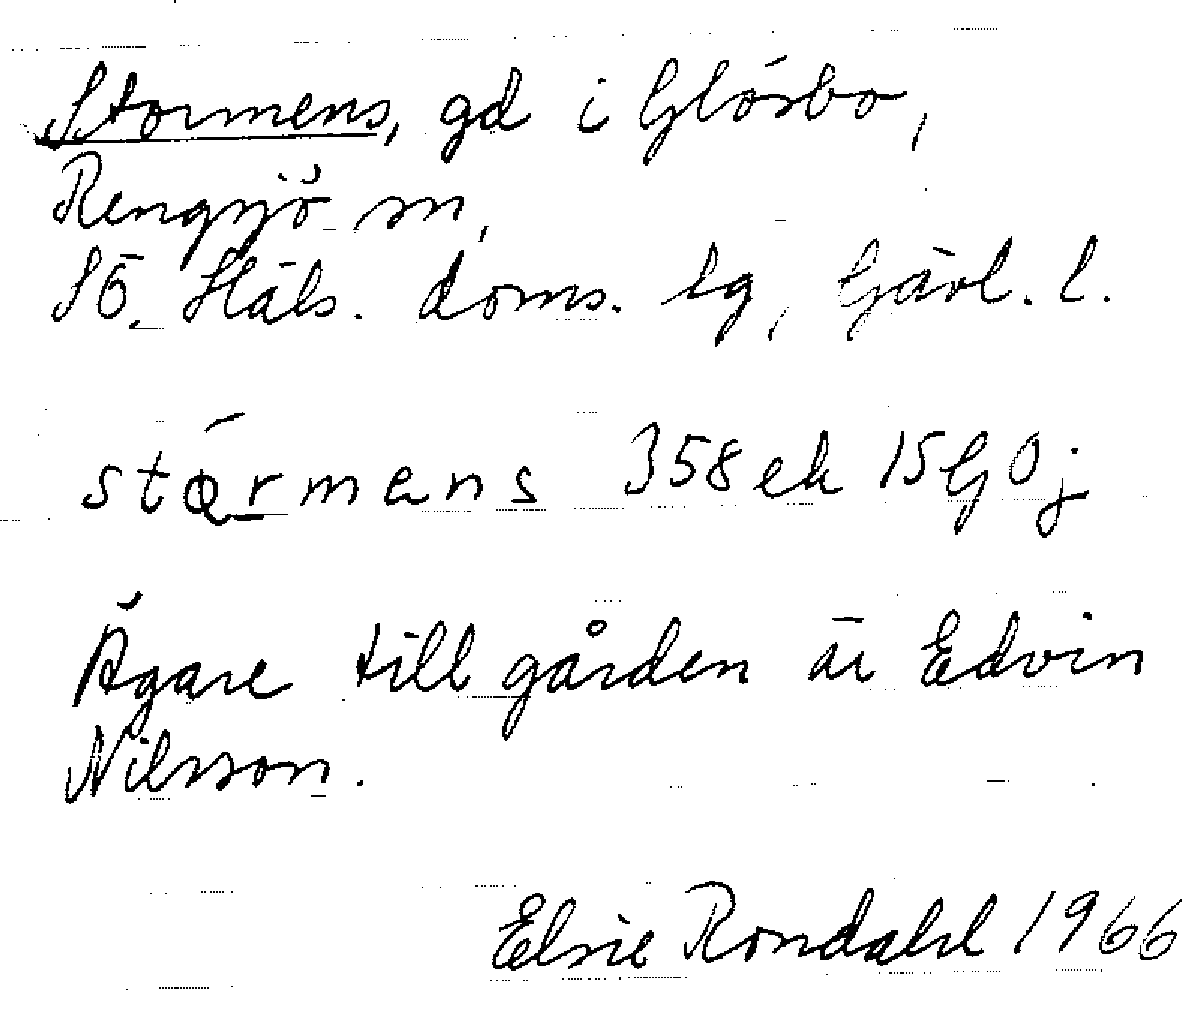 Stormens, gd i Glösbo,
Rengsjö sn,
SÖ. Häls. doms. lg, Gävl. l.
stǫ́rmens 358 ek 15G0j
Ägare till gården är Edvin
Nilsson.
Elsie Rondahl 1966